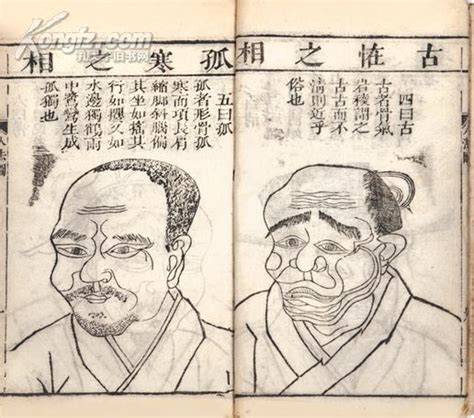 古恠之相
四曰古
古者骨氣
岩稜謂之
古古而不
清則近乎
俗也
孤寒之相
五曰孤
孤者形骨孤
寒而項長肩
縮脚斜腦偏
其坐如搖其
行如攫又如
水邊獨鶴雨
中鷺鷥生成
孤獨也
Kongfz.com
孔夫子旧书网